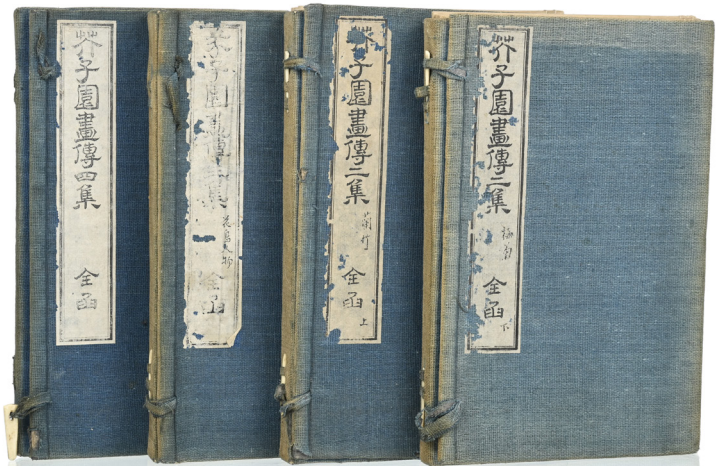 芥子園畫傳四集
全函
芥子園畫傳三集
花鳥人物
全函
芥子園畫傳二集
蘭竹
全函
上
芥子園畫傳二集
梅菊
全函
下